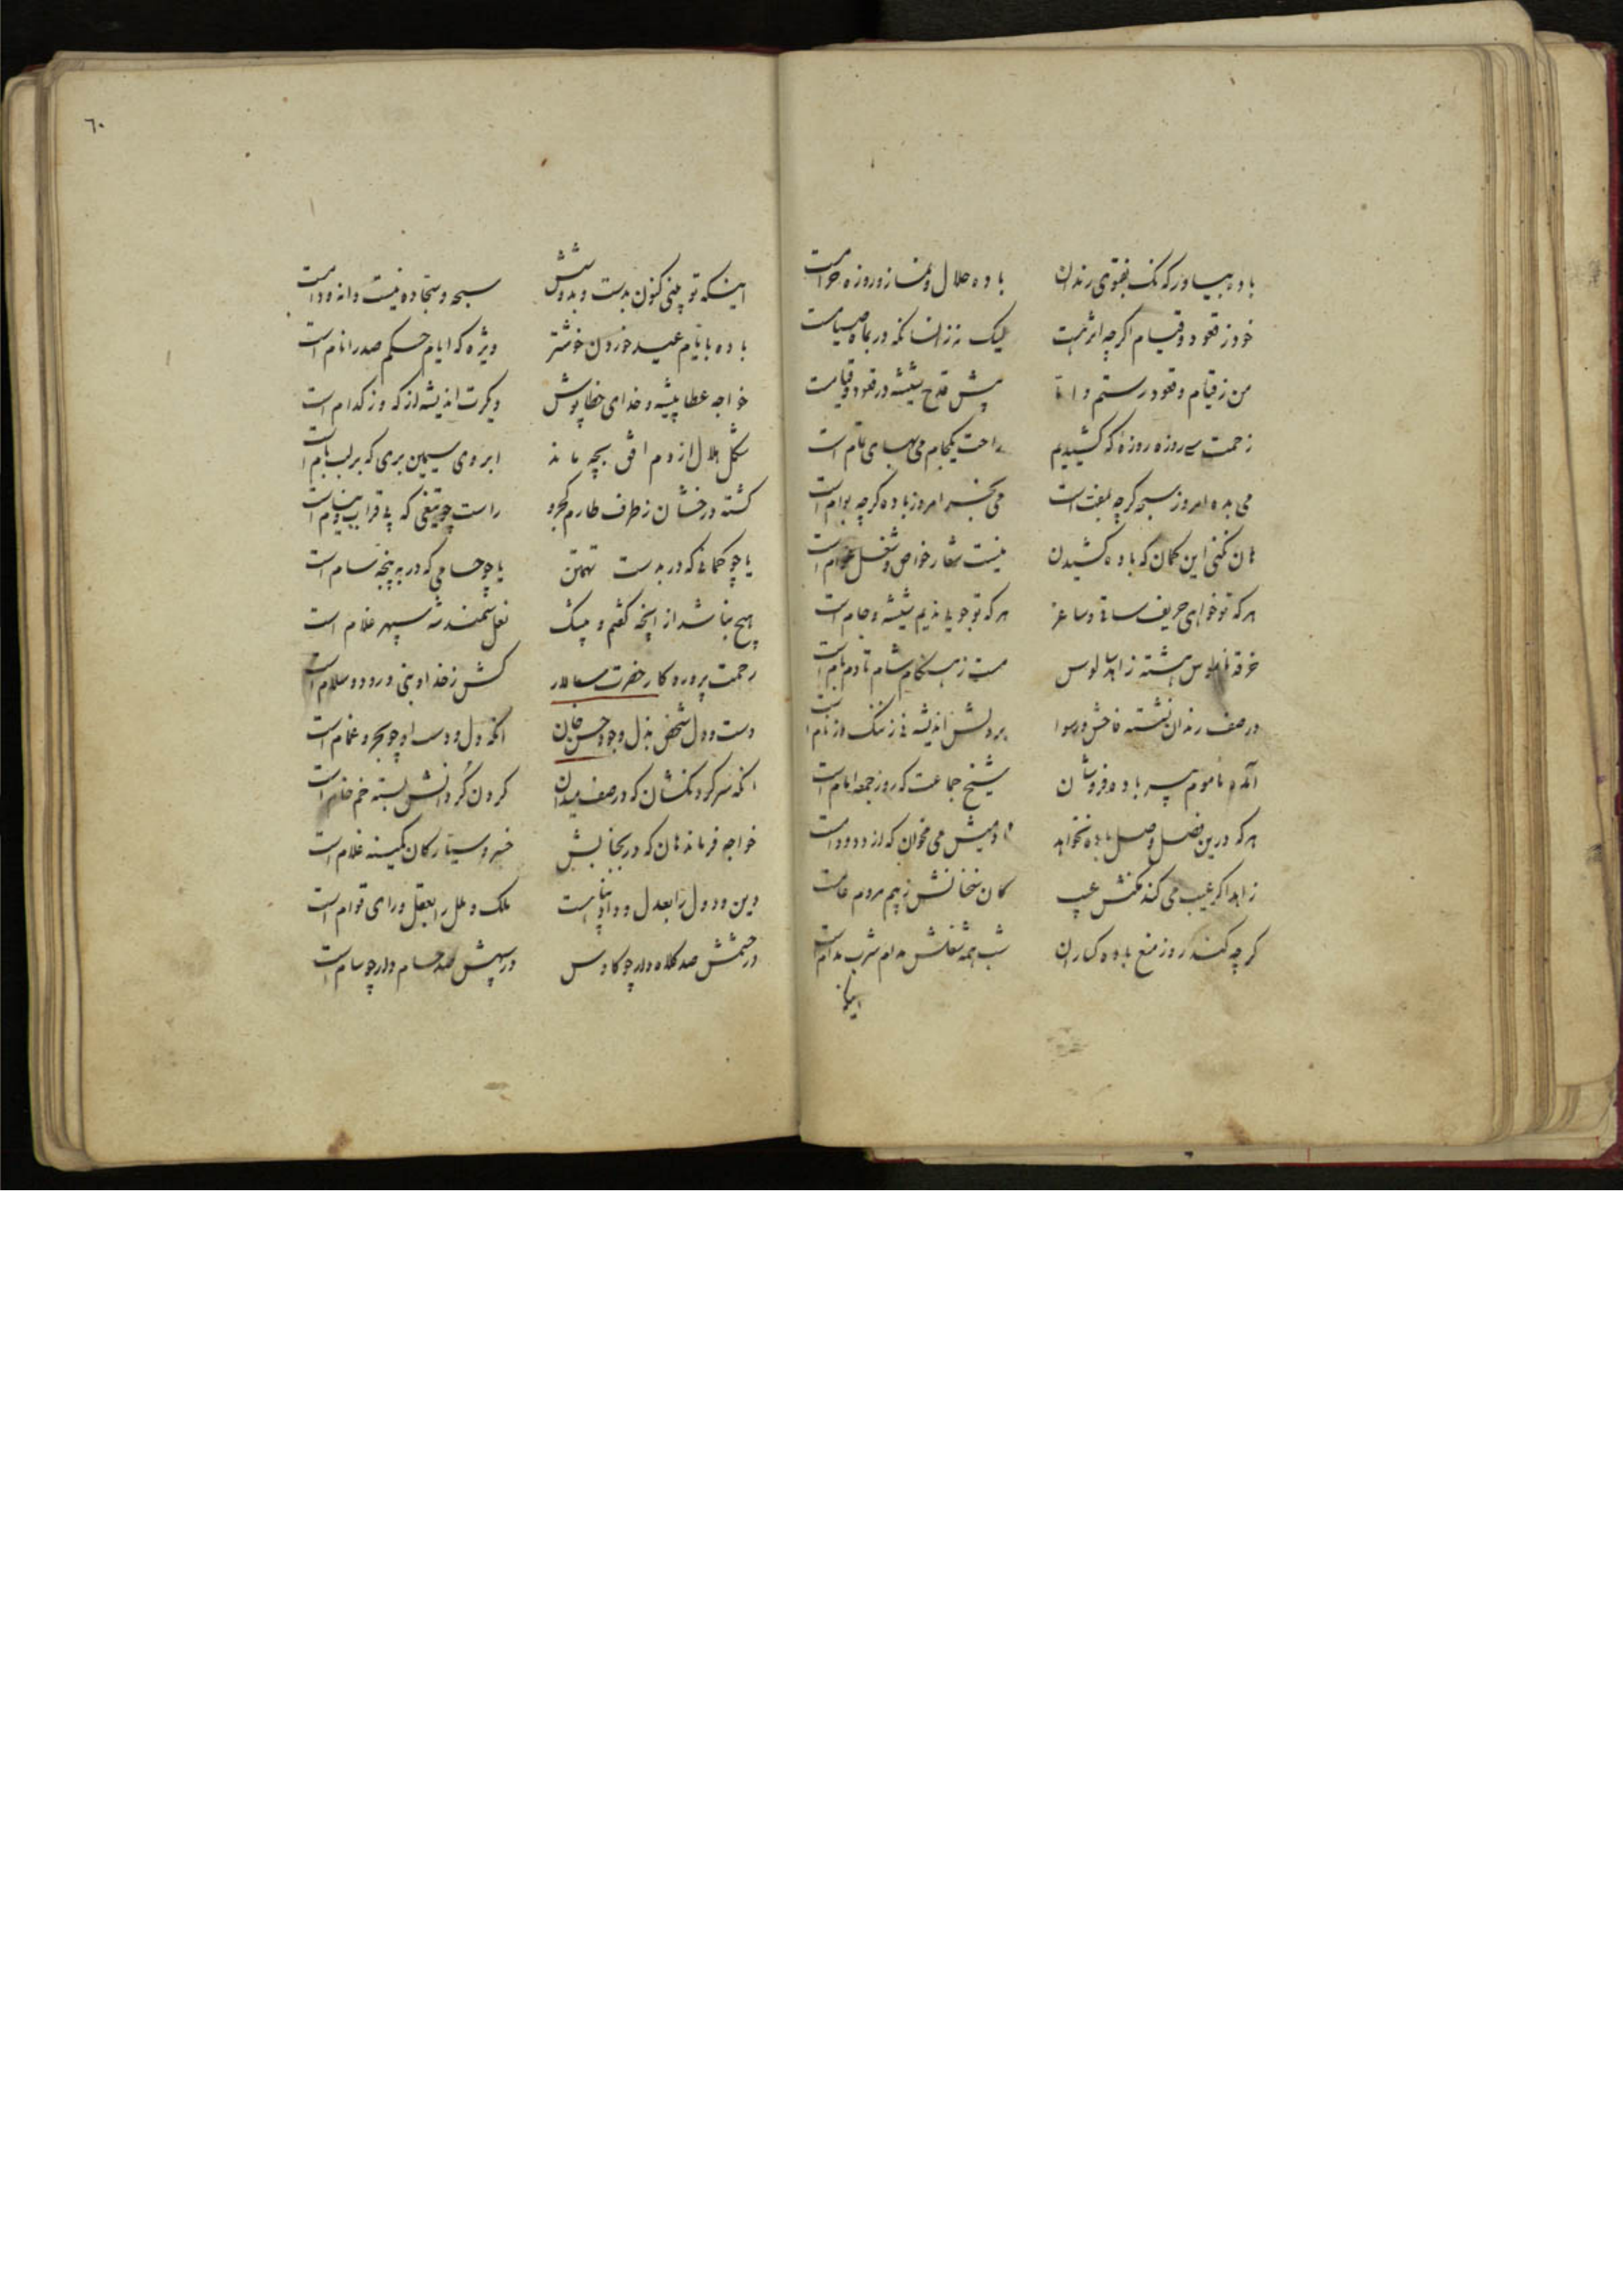 باده بیاور که نک بفتوی رندان باده حلال و نماز و روزه حرامست
خود ز قعود و قیام اگرچه اثر نیست لیک نه زانسانکه در بماه صیامست
من ز قیام و قعود رستم و اما پیش قدح شیشه در قعود و قیامست
زحمت سی روزه روزهٔ که کشیدیم راحت یکجام می بهای تمام است
می بده امروز سبحه گرچه بفت است می بخر امروز باده گرچه بوام است
هان نکنی این گمان که باده کشیدن نیست شعار خواص و شغل عوام است
هر که تو خواهی حریف ساقی و ساغر هر که تو جویی ندیم شیشه و جام است
خرقه ناموس هشته زاهد سالوس مست ز هنگام شام تا دم بام است
در صف رندان نشسته فاحش و رسوا بر دلش اندیشه نی ز ننگ و ز نام است
آمده ماموم پیر باده فروشان شیخ جماعت که روز جمعه امام است
هر که درین فصل وصل باده نخواهد آدمیش می مخوان که از دد و دام است
زاهد اگر عیب می کند مکنش عیب کان سخنانش ز بیم مردم عامست
گرچه کند روز منع باده گساران شب همه شغلش مدام شرب مدام است
اینکه
٦٠
اینکه تو بینی کنون بدست و بدوشش سبحه و سجاده نیست دانه و دامست
باده بایام عید خوردن خوشتر ویژه که ایام حکم صدر انام است
خواجه عطا پیشه و خدای خطاپوش دیگرت اندیشه از که وز کدام است
شکل هلال از دم افق بچه ماند ابروی سیمین بری که بر لب بام است
گشته درخشان ز طرف طارم کجرو راست چو تیغی که پی قراب و نیام است
یا چو کمانی که در بدست تهمتن یا چو حسامی که در به پنجه سام است
هیچ نباشد از اینچه گفتم و بیشک نعل سمند شه سپهر غلام است
رحمت پروردگار حضرت سالار کش ز خداوند نبی درود و سلام است
دست و دل شخص بذل و جود حسن خان انکه دل و دست او چو بحر و غمام است
انکه سر گردنکشان که در صف میدان گردن گردانش بسته خم خام است
خواجه فرماندهان که در بجنابش خسرو سیارگان کمینه غلام است
دین و دول را بعدل و داد پناهست ملک و ملل را بعقل و رای قوام است
در حشمش صد کلاه دار چو کاوس در سپهش صد حسام دار چو سام است